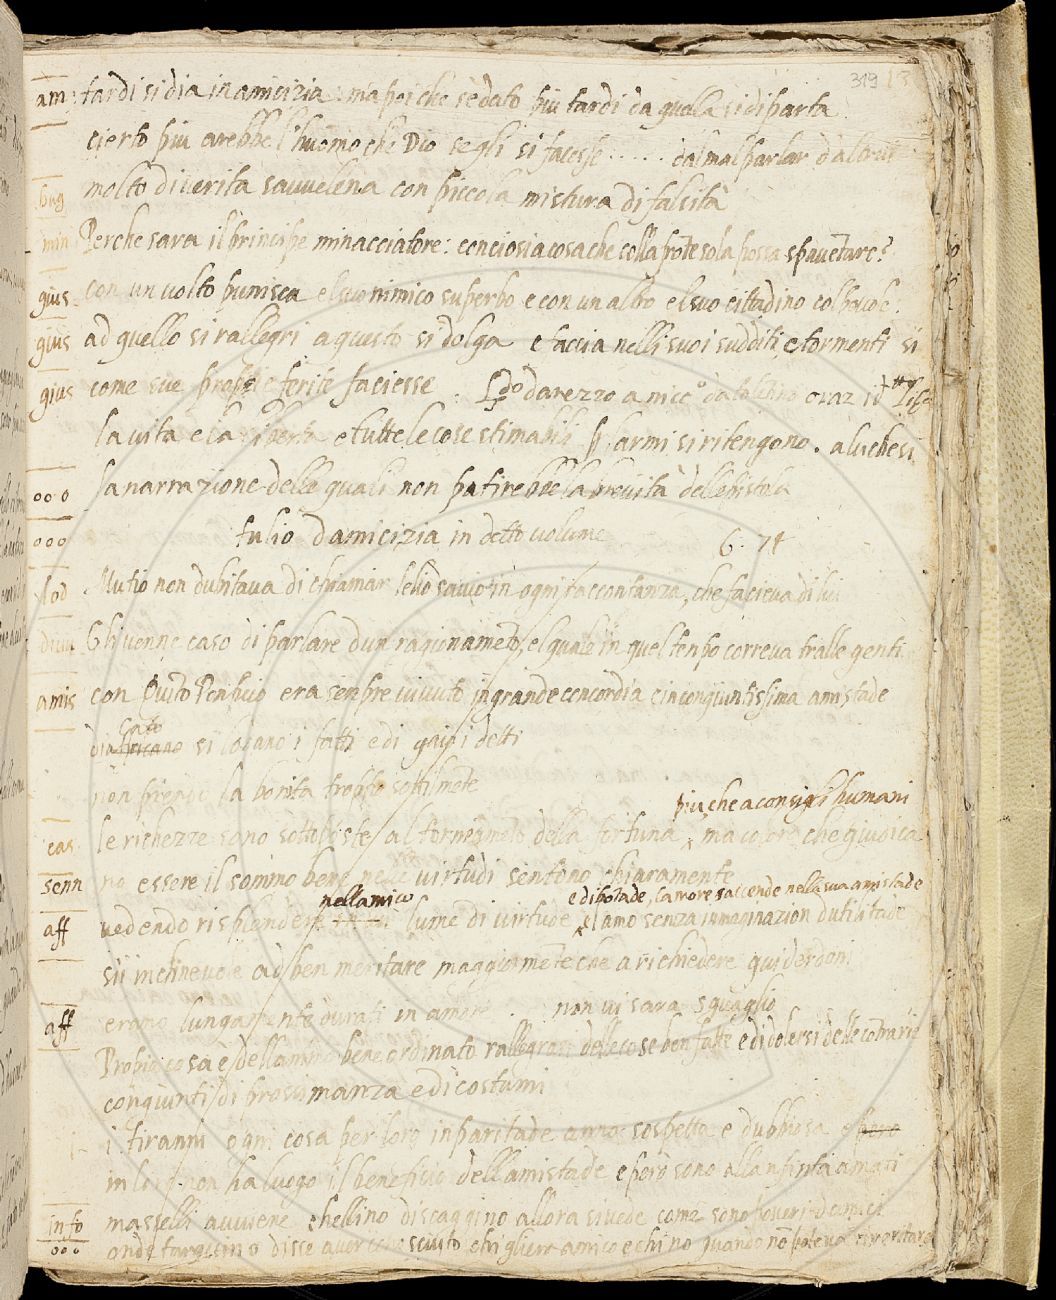 319 13
am: tardi si dia in amicizia: ma poi che s'è dato piu tardi da quella si diparta
cierto piu arebbe l'huomo che Dio se gli si facesse ...... dal mal parlar d'altrui
bug molto di verita s'avvelena con piccola mistura di falsità
min Perche sara il principe minacciatore: conciosiacosache colla frōte sola possa spauētare?
gius con un uolto punisca el suo nimico superbo e con un altro el suo cittadino colpevole.
gius ad quello si rallegri a questo si dolga e faccia nelli suoi sudditi e tormenti si
gius come sue proprie ferite faciesse: L.do d'arezzo a nicc.o da tolentino oraz.
la vita e la liberta e tutte le cose stimabili p armi si ritengono. aluchesi
000 la narrazione delle quali non patirebbe la brevità dell'epistola
000 tulio d'amicizia in detto uolume 6. 74
lod Mutio non dubitava di chiamar lelio savio in ogni raccontanza, che facieva di lui
diuu Gli venne caso di parlare d'un ragionamēto, el quale in quel tenpo correva tralle genti
amis con Quito Ponpeio era senpre vivuto in grande concordia e in congiuntissima amistade
Cato
di affricano si lodano i fatti e di gaio i detti
non prendi la bonita troppo sottilmēte
piu, che a consigli humani
cas le richezze sono sottoposte al torneamēto della fortuna, ma coloro che giudica
senn no essere il sommo bene nelle virtudi sentono chiaramente
nell amico e di bōtade, l'amore s'accende nella sua amistade
aff vedendo risplendere lume di virtude el amo senza inmaginazion d'utilitade
sii inchinevole ad ben meritare maggiormēte che a richiedere guiderdoni
aff erano lungamente durati in amore. non vi sara sguaglio
Propia cosa è dell'animo bene ordinato rallegrarsi delle cose ben fatte e di dolersi delle cōtrarie
congiunti di prossimanza e di costumi
i tiranni ogni cosa per loro inparitade anno sospetta e dubbiosa e pero
in loro non ha luogo il beneficio dell'amistade e però sono alla nfinta amati
info ma s'elli avviene ch'ellino discaggino allora si vede come sono poveri d'amici
000 onde tarquino disse aver conosciuto chi gliera amico e chi no quando nō poteva rimeritare